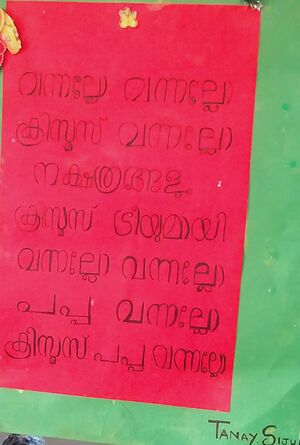 വന്നല്ലോ വന്നല്ലോ
ക്രിസ്മസ് വന്നല്ലോ
നക്ഷത്രങ്ങളും
ക്രിസ്മസ് ട്രീയുമായി
വന്നല്ലോ വന്നല്ലോ
പപ്പ വന്നല്ലോ
ക്രിസ്മസ് പപ്പ വന്നല്ലോ
TANAY.